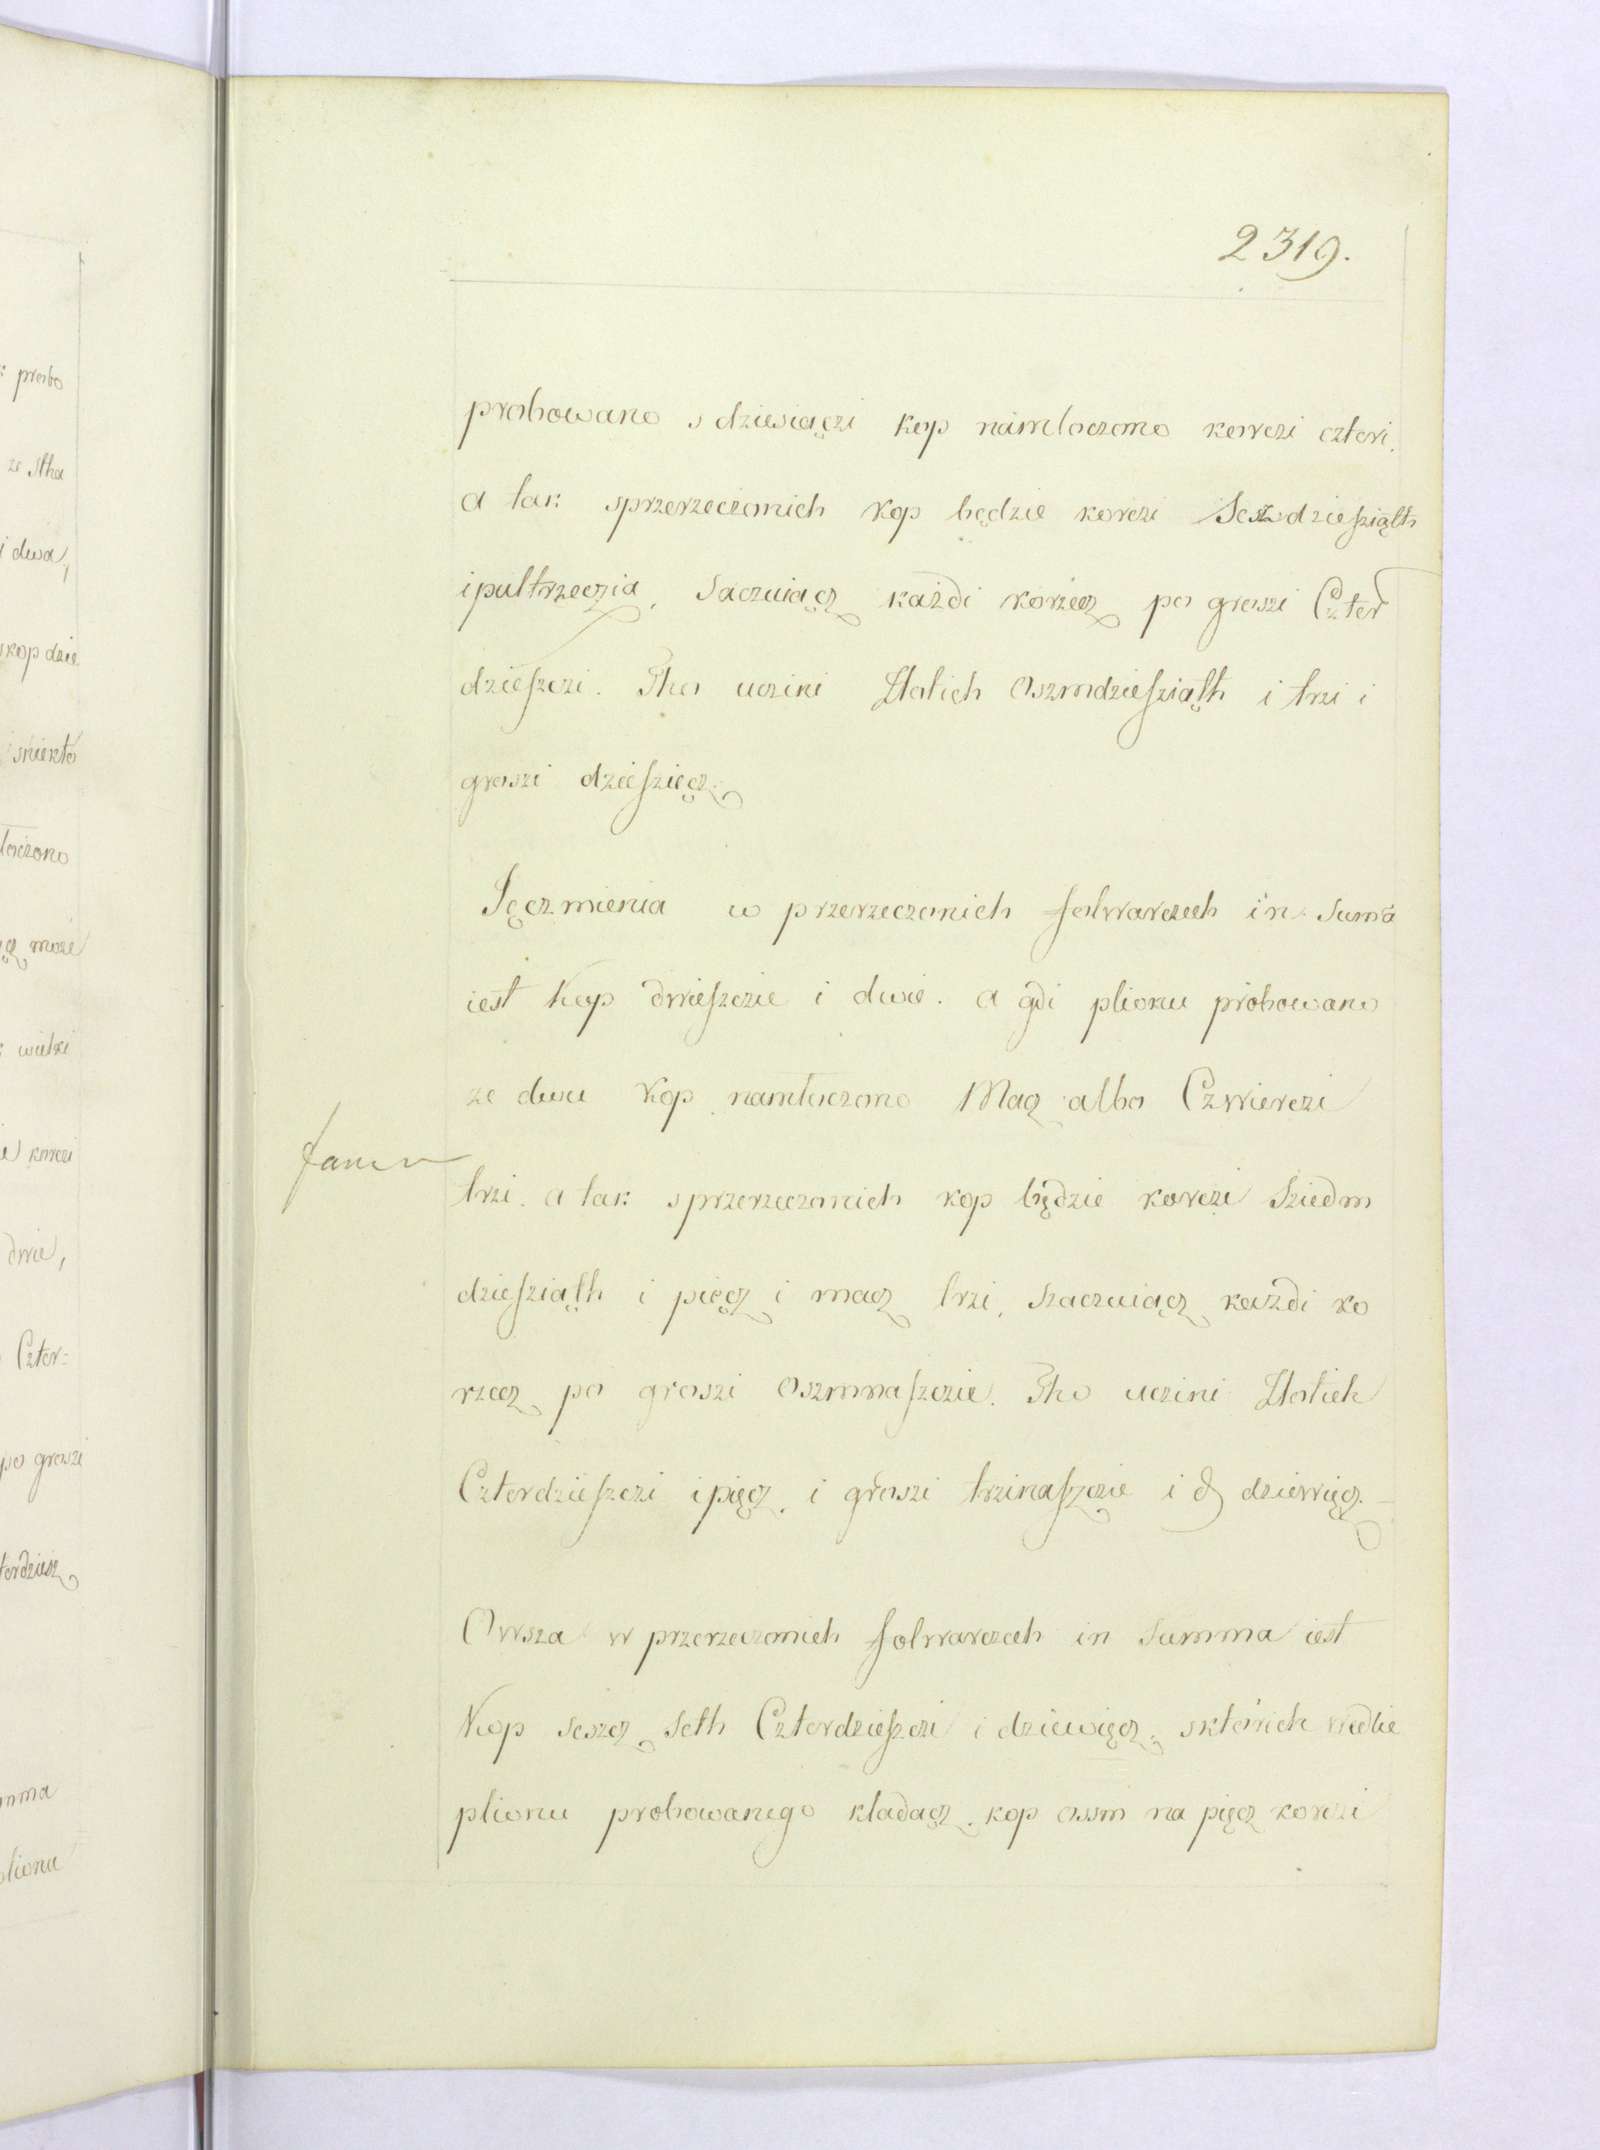 2319.
probowano s dziesiąćzi kop námloczono korczi czteri.
a tak sprzerzeczonich kop będzie korczi Sesdziesziąth
i pultrzeczia, Saczuiącz każdi korzecz po groszi Czter
dzieszczi. Tho uczini Złotich Oszmdziesziąth i trzi i
groszi dziesziecz.
Jęczmienia w przerzeczonich folwarczech in Suma
iest kop dwieszczie i dwie. a gdi plionu probowano
ze dwu kop namłoczono Macz albo Czwierczi
trzi. a tak sprzerzeczonich kop będzie korczi Sziedm
dziesziąth i pięcz i macz trzi, szaczuiącz każdi ko
rzecz po groszi oszmnaszczie. Tho uczini Złotich
Czterdzieszczi i pięcz, i groszi trzinaszczie i d dziewięcz.
Owsza w przerzeczonich folwarczech in Summa iest
kop szescz Seth Czterdzieszczi i dziewięcz, sktórich wedlie
plionu probowanego kladącz kop ossm na pięcz korczi
probo
ze Stha
i dwa,
kop dzie
łoczono
może
wielki
korczi
dwie,
Czter=
po groszi
terdziesz
mma
plionu